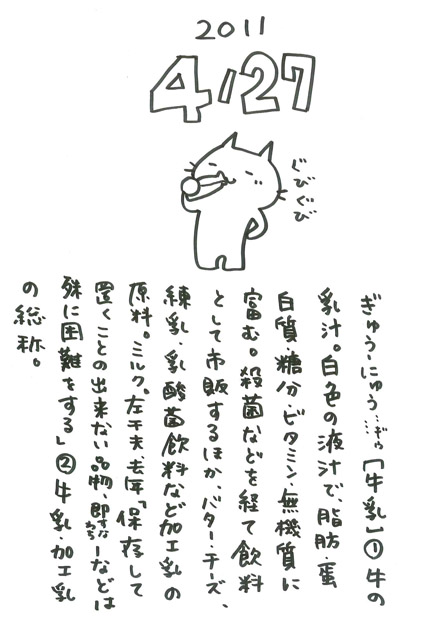 2011
4/27
ぐびぐび
ぎゅう-にゅう…ギウ【牛乳】①牛の
乳汁。白色の液汁で、脂肪・蛋
白質・糖分・ビタミン・無機質に
富む。殺菌などを経て飲料
として市販するほか、バター・チーズ、
練乳・乳酸菌飲料など加工乳の
原料。ミルク。左千夫、去年「保存して
置くことの出来ない品物、即すなわち―などは
殊に困難をする」②牛乳・加工乳
の総称。